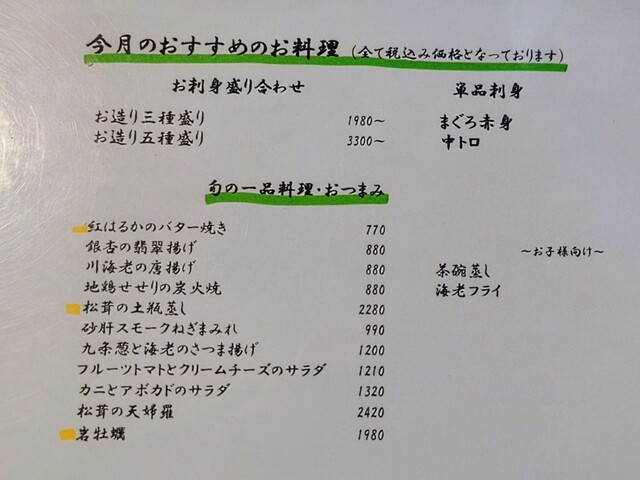 今月のおすすめのお料理 (全て税込み価格となっております)
お刺身盛り合わせ
お造り三種盛り 1980～
お造り五種盛り 3300～
単品刺身
まぐろ赤身
中トロ
旬の一品料理・おつまみ
紅はるかのバター焼き 770
銀杏の翡翠揚げ 880
川海老の唐揚げ 880
地鶏せせりの炭火焼 880
松茸の土瓶蒸し 2280
砂肝スモークねぎまみれ 990
九条葱と海老のさつま揚げ 1200
フルーツトマトとクリームチーズのサラダ 1210
カニとアボカドのサラダ 1320
松茸の天婦羅 2420
岩牡蠣 1980
～お子様向け～
茶碗蒸し
海老フライ